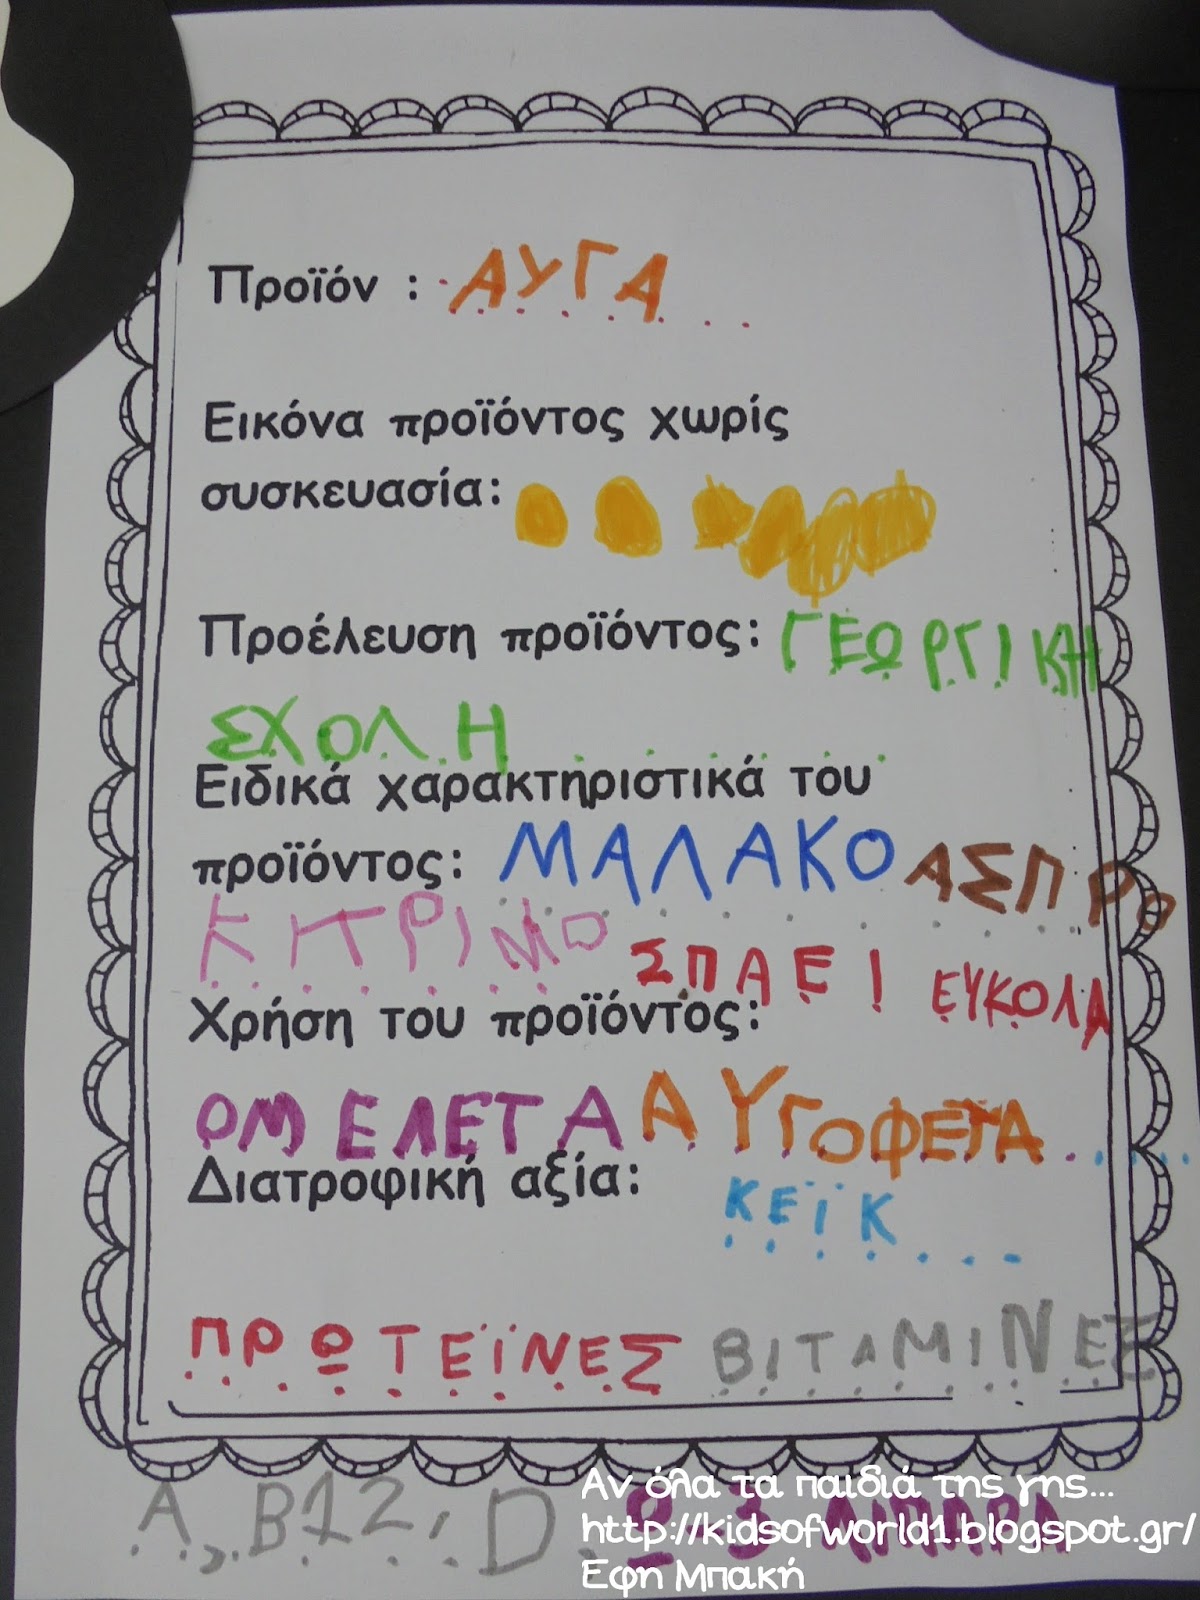 Προϊόν : ΑΥΓΑ
Εικόνα προϊόντος χωρίς
συσκευασία:
Προέλευση προϊόντος: ΓΕΩΡΓΙΚΗ
ΣΧΟΛΗ
Ειδικά χαρακτηριστικά του
προϊόντος: ΜΑΛΑΚΟ ΑΣΠΡΟ
ΚΙΤΡΙΝΟ ΣΠΑΕΙ ΕΥΚΟΛΑ
Χρήση του προϊόντος:
ΟΜΕΛΕΤΑ ΑΥΓΟΦΕΤΑ
Διατροφική αξία: ΚΕΪΚ
ΠΡΩΤΕΪΝΕΣ ΒΙΤΑΜΙΝΕΣ
Α, Β12, D, Ω-3 ΛΙΠΑΡΑ
Αν όλα τα παιδιά της γης...
http://kidsofworld1.blogspot.gr/
Έφη Μπακή